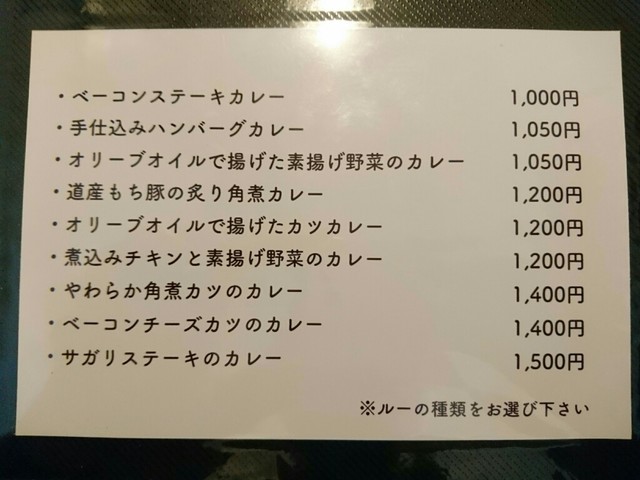 ・ベーコンステーキカレー 1,000円
・手仕込みハンバーグカレー 1,050円
・オリーブオイルで揚げた素揚げ野菜のカレー 1,050円
・道産もち豚の炙り角煮カレー 1,200円
・オリーブオイルで揚げたカツカレー 1,200円
・煮込みチキンと素揚げ野菜のカレー 1,200円
・やわらか角煮カツのカレー 1,400円
・ベーコンチーズカツのカレー 1,400円
・サガリステーキのカレー 1,500円
※ルーの種類をお選び下さい